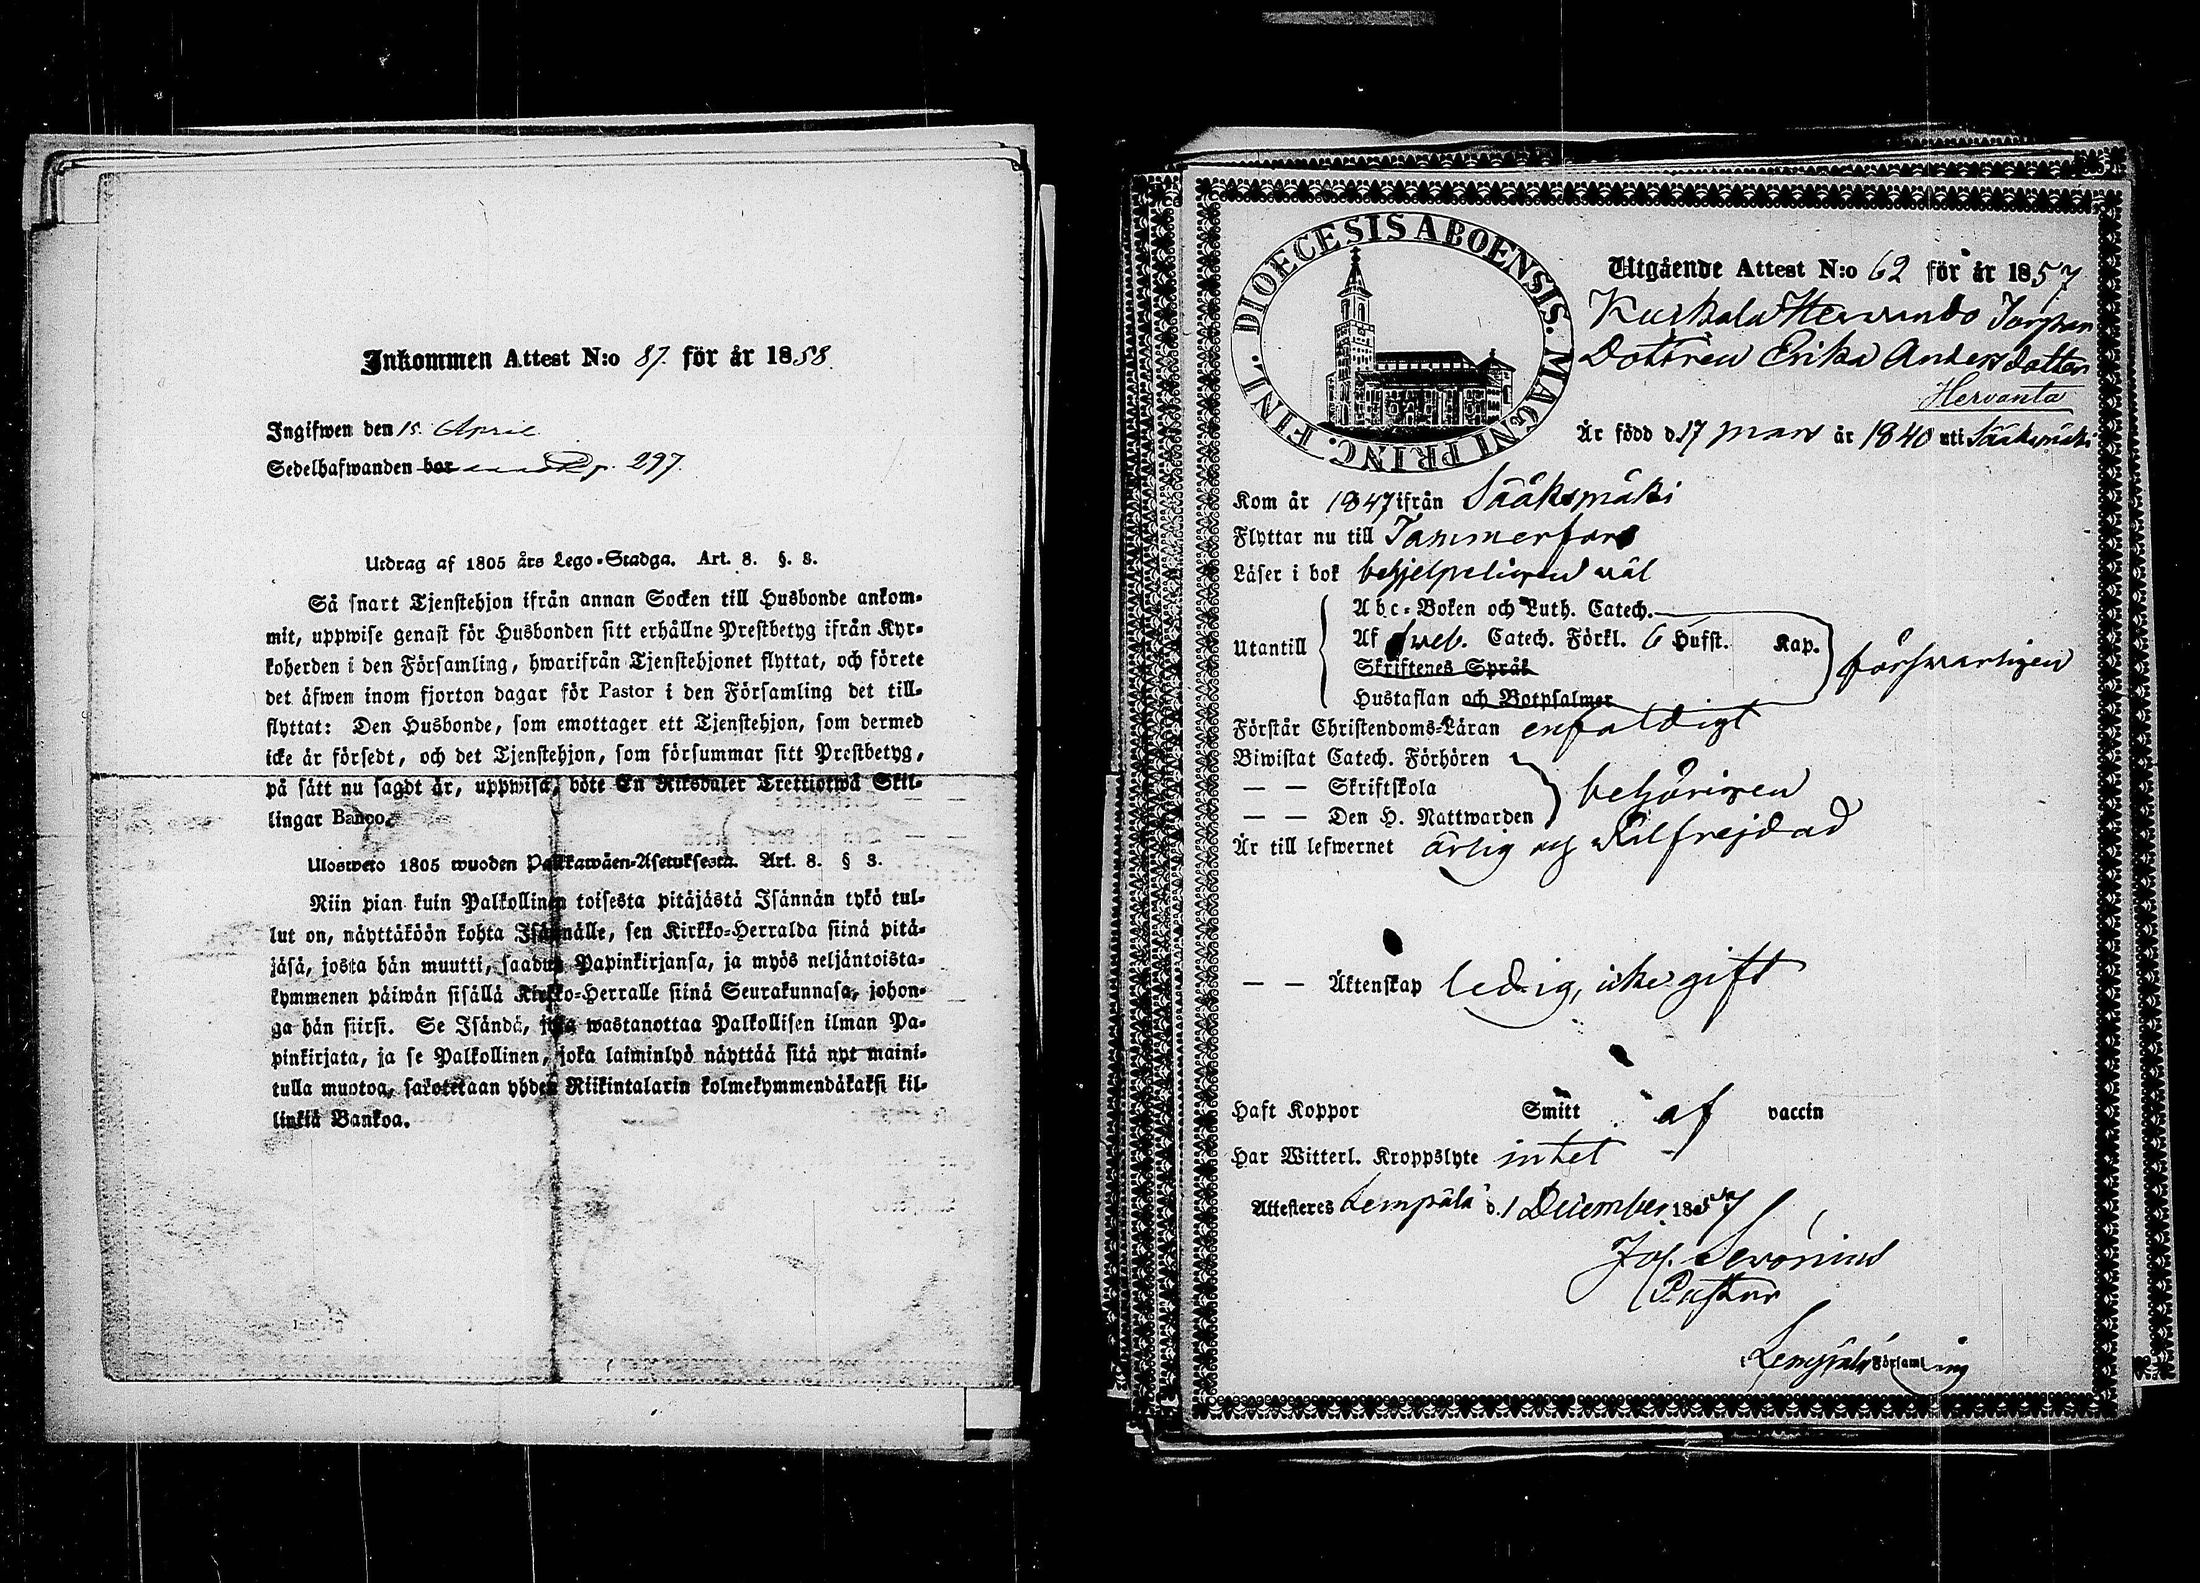 Inkommen Attest N:o 87. för år 1858.
Ingifwen den 15. April
Sedelhafwanden bor p. 297.
Utdrag af 1805 års Lego-Stadga. Art. 8. §. 8.
Så snart Tjenstehjon ifrån annan Socken till Husbonde ankom-
mit, uppwise genast för Husbonden sitt erhållne Prestbetyg ifrån Kyr-
koherden i den Församling, hwarifrån Tjenstehjonet flyttat, och förete
det äfwen inom fjorton dagar för Pastor i den Församling det till-
flyttat: Den Husbonde, som emottager ett Tjenstehjon, som dermed
icke är försedt, och det Tjenstehjon, som försummar sitt Prestbetyg,
på sätt nu sagdt är, uppwisa, böte En Riksdaler Trettiotwå Skil-
lingar Banco.
Ulosweto 1805 wuoden Palkkawäen-Asetuksesta. Art. 8. § 3.
Niin pian kuin Palkollinen toisesta pitäjästä Isännän tykö tul-
lut on, näyttäköön kohta Isännälle, sen Kirkko-Herralda siinä pitä-
jäsä, josta hän muutti, saadun Papinkirjansa, ja myös neljäntoista-
kymmenen päiwän sisällä Kirkko-Herralle siinä Seurakunnasa, johon-
ga hän siirsi. Se Isändä, joka wastanottaa Palkollisen ilman Pa-
pinkirjata, ja se Palkollinen, joka laiminlyö näyttää sitä nyt maini-
tulla muotoa, sakotetaan yhden Riikintalarin kolmekymmendäkaksi kil-
linkiä Bankoa.
FINL. DIOECESIS ABOENSIS. MAGNI PRINC.
Utgående Attest N:o 62 för år 1857
Kuskala Hervando Torpar
Dottren Erika Andersdotter
Hervanta
Är född d. 17 mars år 1840 uti Sääksmäki
Kom år 1847 ifrån Sääksmäki
Flyttar nu till Tammerfors
Läser i bok behjelpeligen wäl
Utantill
Abc-Boken och Luth. Catech.
Af Sweb. Catech. Förkl. 6 Hufst. Kap.
Skriftenes Språk
Hustaflan och Botpsalmer
försvarligen
Förstår Christendoms-Läran enfaldigt
Biwistat Catech. Förhören
— — Skriftskola
— — Den H. Nattwarden
behörigen
Är till lefwernet ärlig och wälfrejdad
— — Äktenskap ledig, icke gift
Haft Koppor Smitt af vaccin
Har Witterl. Kroppslyte intet
Attesteres Lempälä d. 1 December 1857
Jos. Serenius
Pastor
i Lempälä Församling